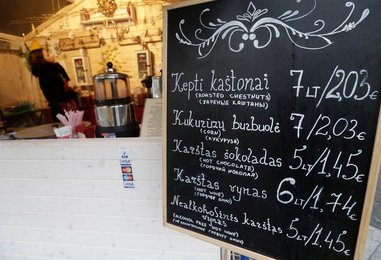 Kepti kaštonai 7 LT/2,03€
(ROASTED CHESTNUTS)
(ЖАРЕНЫЕ КАШТАНЫ)
Kukurūzų burbuolė 7/2,03€
(CORN)
(КУКУРУЗА)
Karštas šokoladas 5LT/1,45€
(HOT CHOCOLATE)
(ГОРЯЧИЙ ШОКОЛАД)
Karštas vynas 6LT/1.74€
(HOT WINE)
(ГОРЯЧЕЕ ВИНО)
Nealkoholinis karštas vynas 5LT/1.45€
(ALCOHOL FREE HOT WINE)
VISA